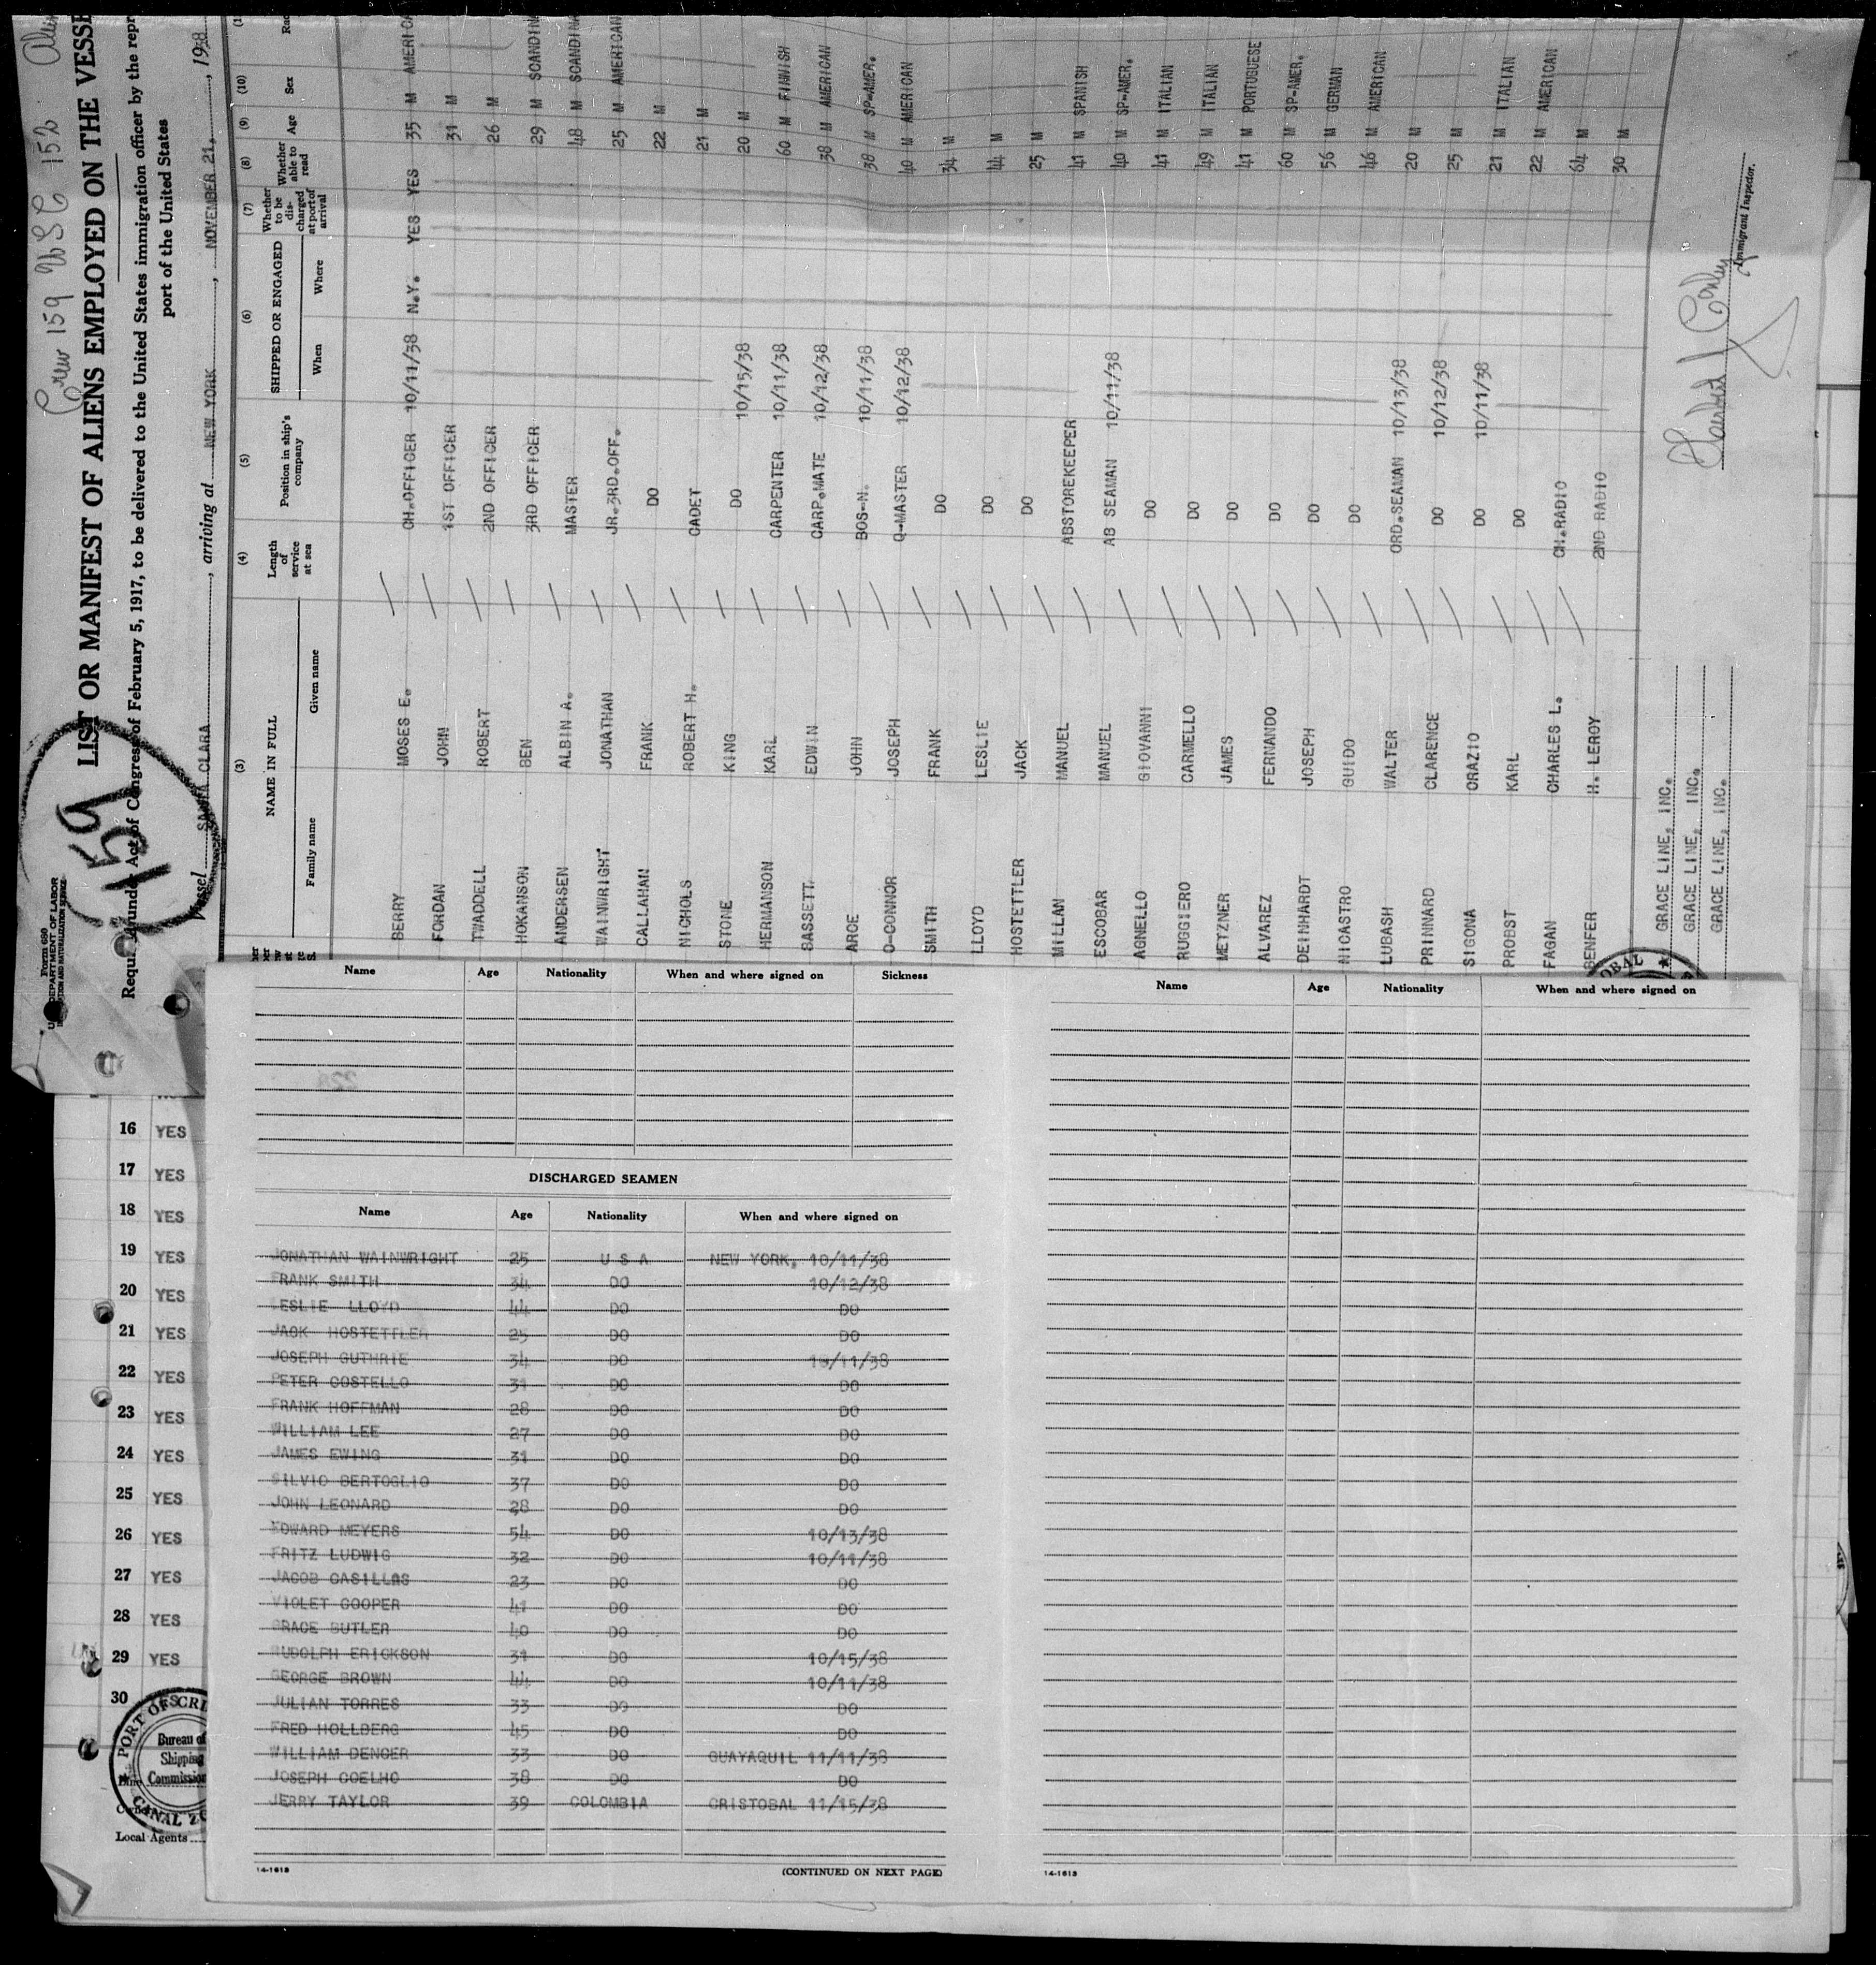 Crew 159 USC 152
159
Form 680
DEPARTMENT OF LABOR
LIST OR MANIFEST OF ALIENS EMPLOYED ON THE VESSE
Act of Congress of February 5, 1917, to be delivered to the United States immigration officer by the repr
port of the United States
Vessel SANTA CLARA, arriving at NEW YORK, NOVEMBER 21, 1938
(3) (4) (5) (6) (7) (8) (9) (10)
NAME IN FULL Length of service at sea Position in ship's company SHIPPED OR ENGAGED Whether to be discharged at port of arrival Whether able to read Age Sex
Family name Given name When Where
BERRY MOSES E. CH.OFFICER 10/11/38 N.Y. YES YES 35 M
FORDAN JOHN 1ST OFFICER 31 M
TWADDELL ROBERT 2ND OFFICER 26 M
HOKANSON BEN 3RD OFFICER 29 M SCANDINA
ANDERSEN ALBIN A. MASTER 48 M SCANDINA
WAINWRIGHT JONATHAN JR.3RD.OFF. 25 M AMERICAN
CALLAHAN FRANK DO 22 M
NICHOLS ROBERT H. CADET 21 M
STONE KING DO 10/15/38 20 M
HERMANSON KARL CARPENTER 10/11/38 60 M FINNISH
BASSETT EDWIN CARP.MATE 10/12/38 38 M AMERICAN
ARCE JOHN BOS-N. 10/11/38 38 M SP-AMER.
O-CONNOR JOSEPH Q-MASTER 10/12/38 40 M AMERICAN
SMITH FRANK DO 34 M
LLOYD LESLIE DO 44 M
HOSTETTLER JACK DO 25 M
MILLAN MANUEL ABSTOREKEEPER 41 M SPANISH
ESCOBAR MANUEL AB SEAMAN 10/11/38 40 M SP-AMER.
AGNELLO GIOVANNI DO 41 M ITALIAN
RUGGIERO CARMELLO DO 49 M ITALIAN
METZNER JAMES DO 41 M PORTUGUESE
ALVAREZ FERNANDO DO 60 M SP-AMER.
DEINHARDT JOSEPH DO 56 M GERMAN
NICASTRO GUIDO DO 46 M AMERICAN
LUBASH WALTER ORD.SEAMAN 10/13/38 20 M
PRINNARD CLARENCE DO 10/12/38 25 M
SIGONA ORAZIO DO 10/11/38 21 M ITALIAN
PROBST KARL DO 22 M AMERICAN
FAGAN CHARLES L. CH.RADIO 64 M
BENFER H. LEROY 2ND RADIO 30 M
GRACE LINE, INC.
GRACE LINE, INC.
GRACE LINE, INC.
Immigrant Inspector.
Name Age Nationality When and where signed on Sickness
DISCHARGED SEAMEN
Name Age Nationality When and where signed on
JONATHAN WAINWRIGHT 25 U S A NEW YORK, 10/11/38
FRANK SMITH 34 DO 10/12/38
LESLIE LLOYD 44 DO DO
JACK HOSTETTLER 25 DO DO
JOSEPH GUTHRIE 34 DO 10/11/38
PETER COSTELLO 31 DO DO
FRANK HOFFMAN 28 DO DO
WILLIAM LEE 27 DO DO
JAMES EWING 31 DO DO
SILVIO BERTOGLIO 37 DO DO
JOHN LEONARD 28 DO DO
EDWARD MEYERS 54 DO 10/13/38
FRITZ LUDWIG 32 DO 10/11/38
JACOB CASILLAS 23 DO DO
VIOLET COOPER 41 DO DO
GRACE BUTLER 40 DO DO
RUDOLPH ERICKSON 31 DO 10/15/38
GEORGE BROWN 44 DO 10/11/38
JULIAN TORRES 33 DO DO
FRED HOLLBERG 45 DO DO
WILLIAM DENCER 33 DO GUAYAQUIL 11/11/38
JOSEPH COELHO 38 DO DO
JERRY TAYLOR 39 COLOMBIA CRISTOBAL 11/15/38
14-1613 (CONTINUED ON NEXT PAGE)
Name Age Nationality When and where signed on
14-1613
16 YES
17 YES
18 YES
19 YES
20 YES
21 YES
22 YES
23 YES
24 YES
25 YES
26 YES
27 YES
28 YES
29 YES
30
PORT OF CRI
Bureau of
Shipping
Commission
CANAL Z
Local Agents